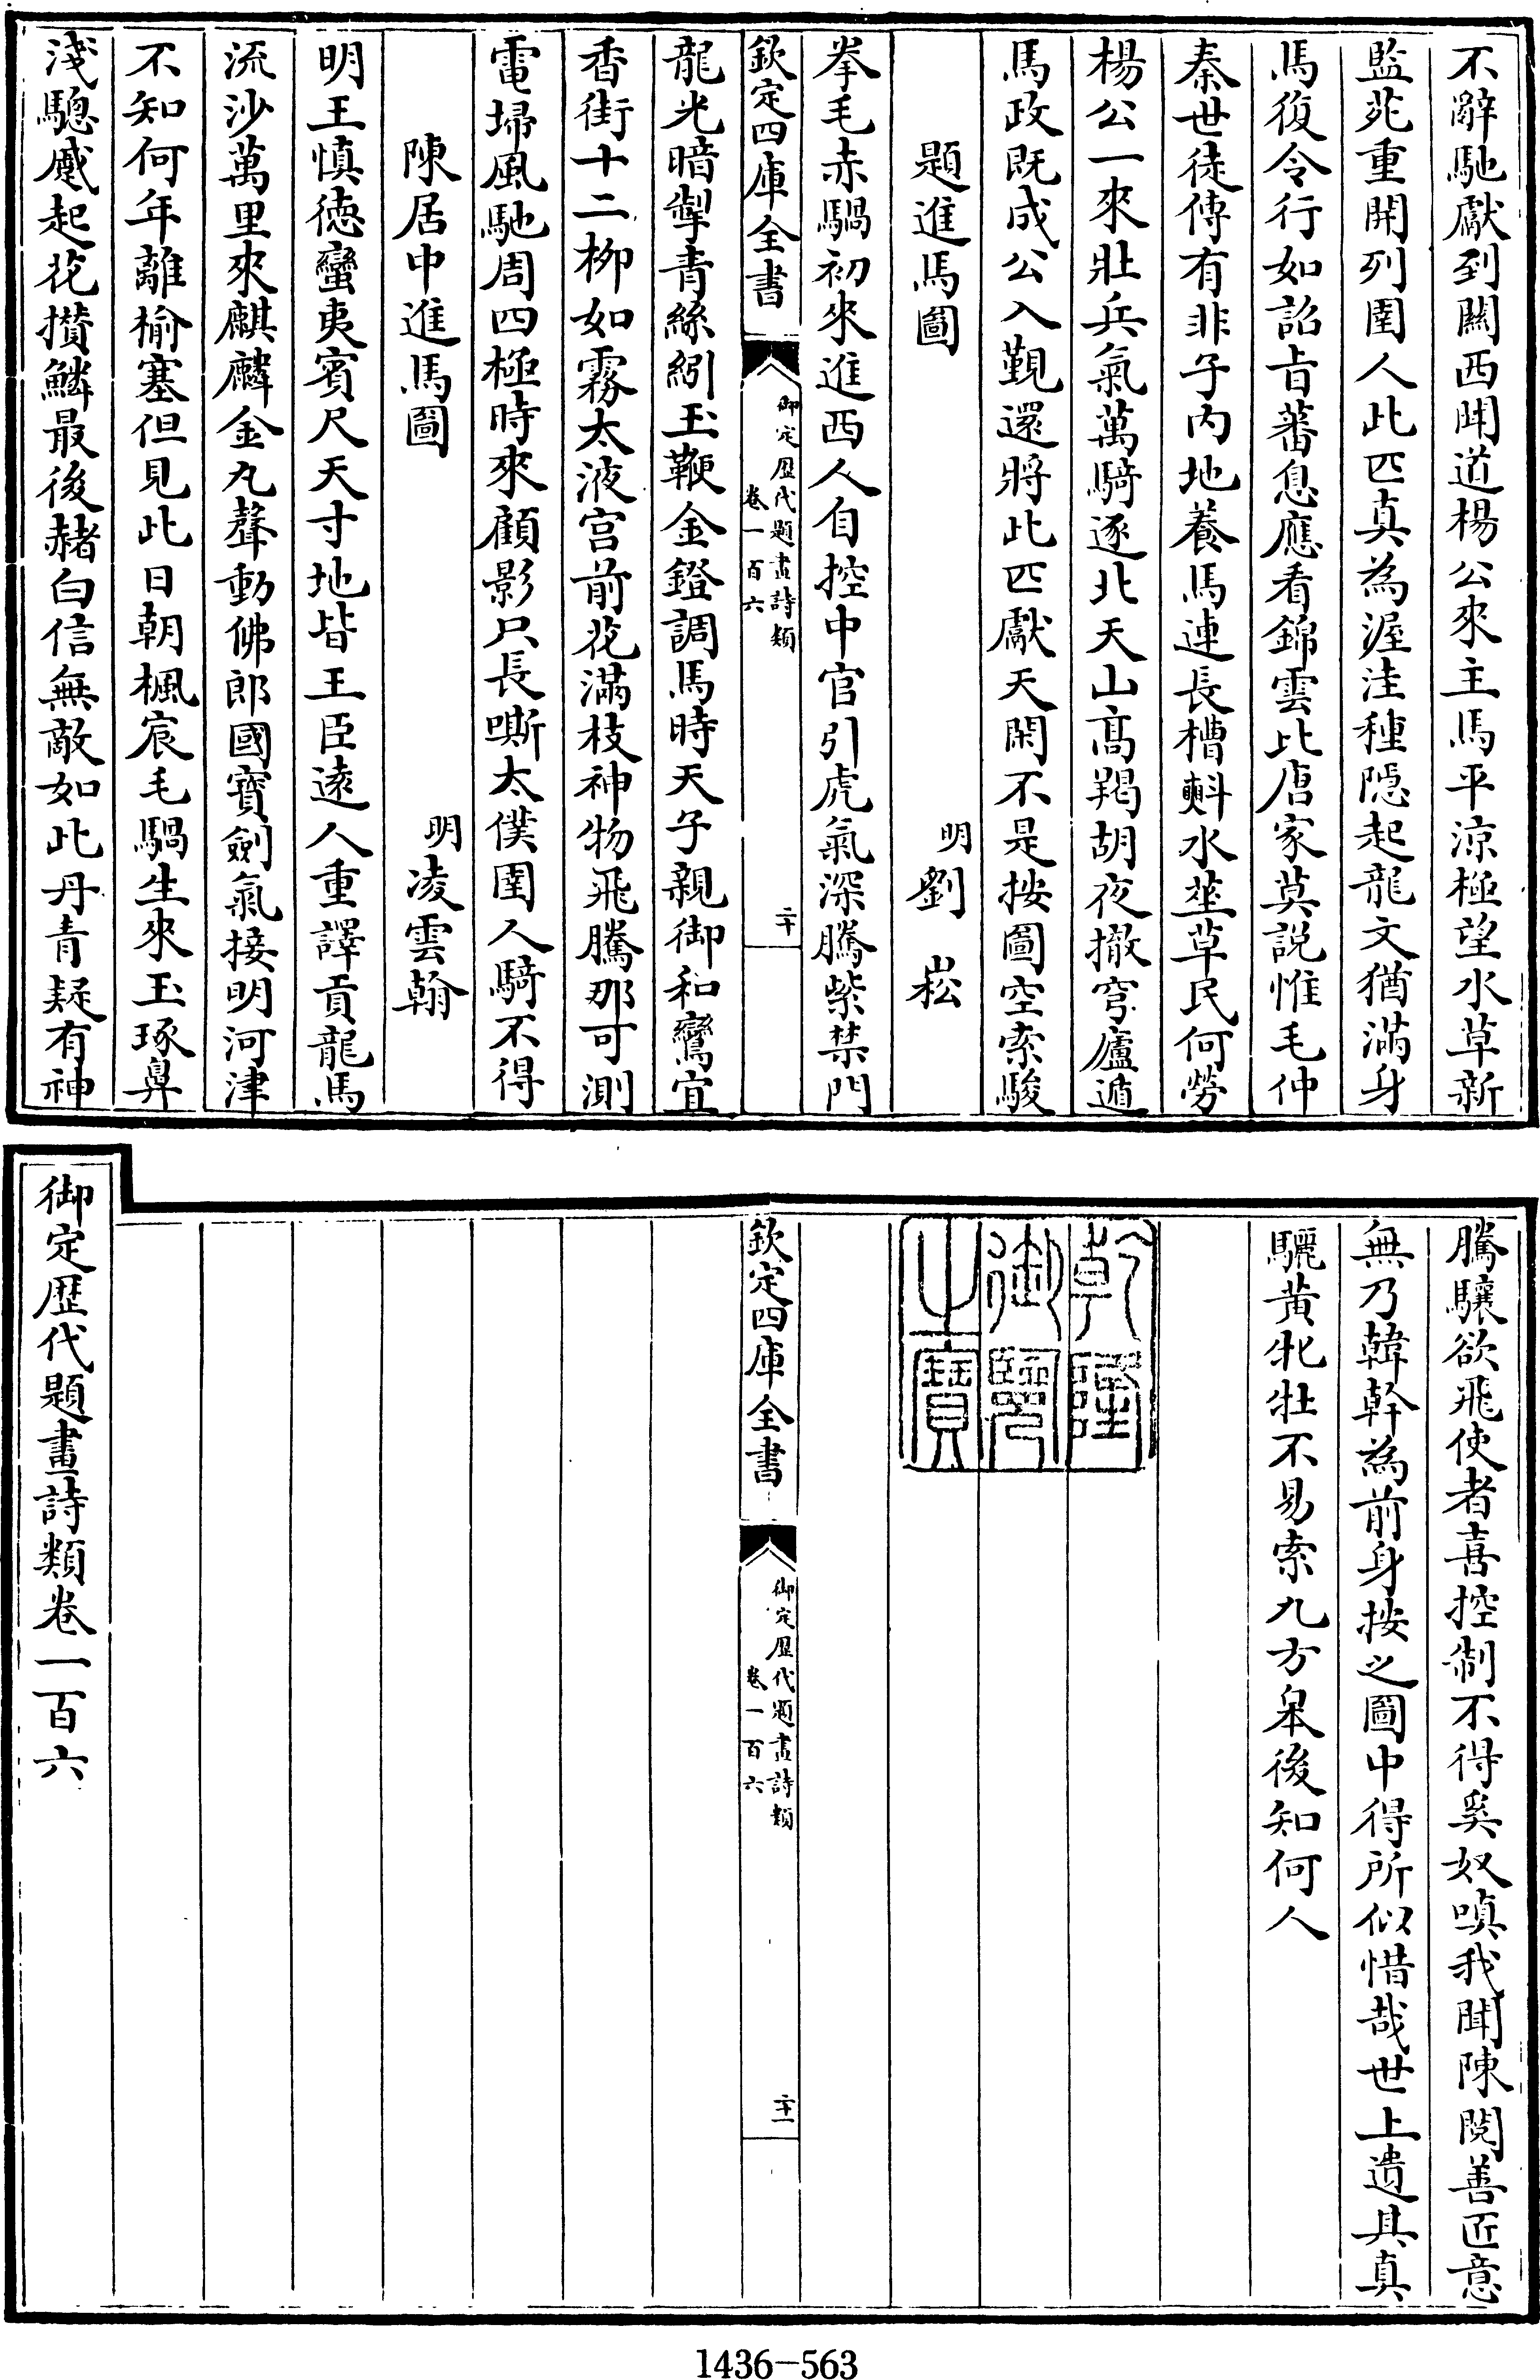 不辭馳獻到闗西聞道楊公來主馬平涼極望水草新
監苑重開列圉人此匹真為渥洼種隠起龍文猶滿身
馬復令行如詔㫖蕃息應看錦雲比唐家莫説惟毛仲
秦世徒傳有非子内地養馬連長槽㪺水莝草民何勞
楊公一來壯兵氣萬騎逐北天山髙羯胡夜撤穹廬遁
馬政既成公入覲還將此匹獻天閑不是按圖空索駿
題進馬圖 明劉崧
拳毛赤騧初來進西人自控中官引虎氣深騰紫禁門
欽定四庫全書
御定歴代題畫詩類
卷一百六
二十
龍光暗掣青絲紖玉鞭金鐙調馬時天子親御和鸞宜
香街十二柳如霧太液宫前花滿枝神物飛騰那可測
電埽風馳周四極時來顧影只長嘶太僕圉人騎不得
陳居中進馬圖 明凌雲翰
明王慎徳蠻夷賓尺天寸地皆王臣逺人重譯貢龍馬
流沙萬里來麒麟金丸聲動佛郎國寳劍氣接明河津
不知何年離榆塞但見此日朝楓宸毛騧生來玉琢鼻
淺驄蹙起花攅鱗最後赭白信無敵如此丹青疑有神
騰驤欲飛使者喜控制不得奚奴嗔我聞陳閎善匠意
無乃韓幹為前身按之圖中得所似惜哉世上遺其真
驪黄牝牡不易索九方臯後知何人
乾隆
御覽
之寶
欽定四庫全書
御定歴代題畫詩類
卷一百六
二十一
御定歴代題畫詩類卷一百六
1436-563